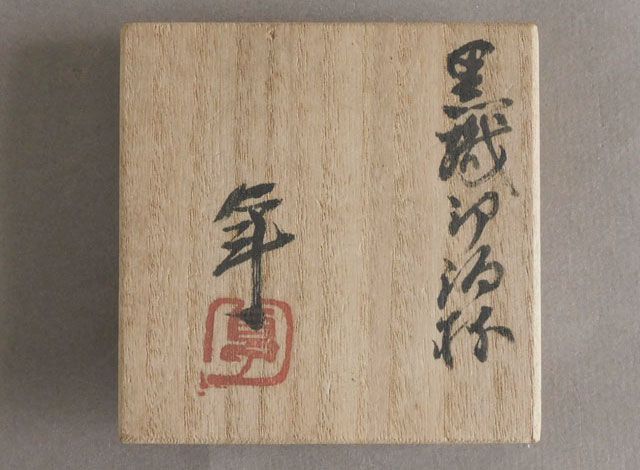 黒織部酒杯